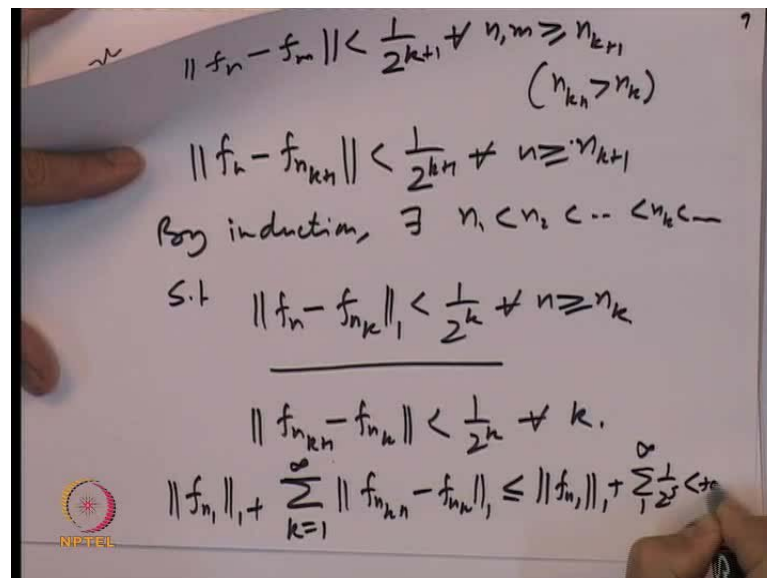 9
‖f_n − f_m‖ < 1/2^{k+1} ∀ n, m ≥ n_{k+1}
(n_{k+1} > n_k)
‖f_n − f_{n_{k+1}}‖ < 1/2^{k+1} ∀ n ≥ n_{k+1}
By induction, ∃ n_1 < n_2 < -- < n_k < --
S.t ‖f_n − f_{n_k}‖_1 < 1/2^k ∀ n ≥ n_k
‖f_{n_{k+1}} − f_{n_k}‖ < 1/2^k ∀ k.
‖f_{n_1}‖_1 + ∑_{k=1}^∞ ‖f_{n_{k+1}} − f_{n_k}‖_1 ≤ ‖f_{n_1}‖_1 + ∑_1^∞ 1/2^j < +
NPTEL